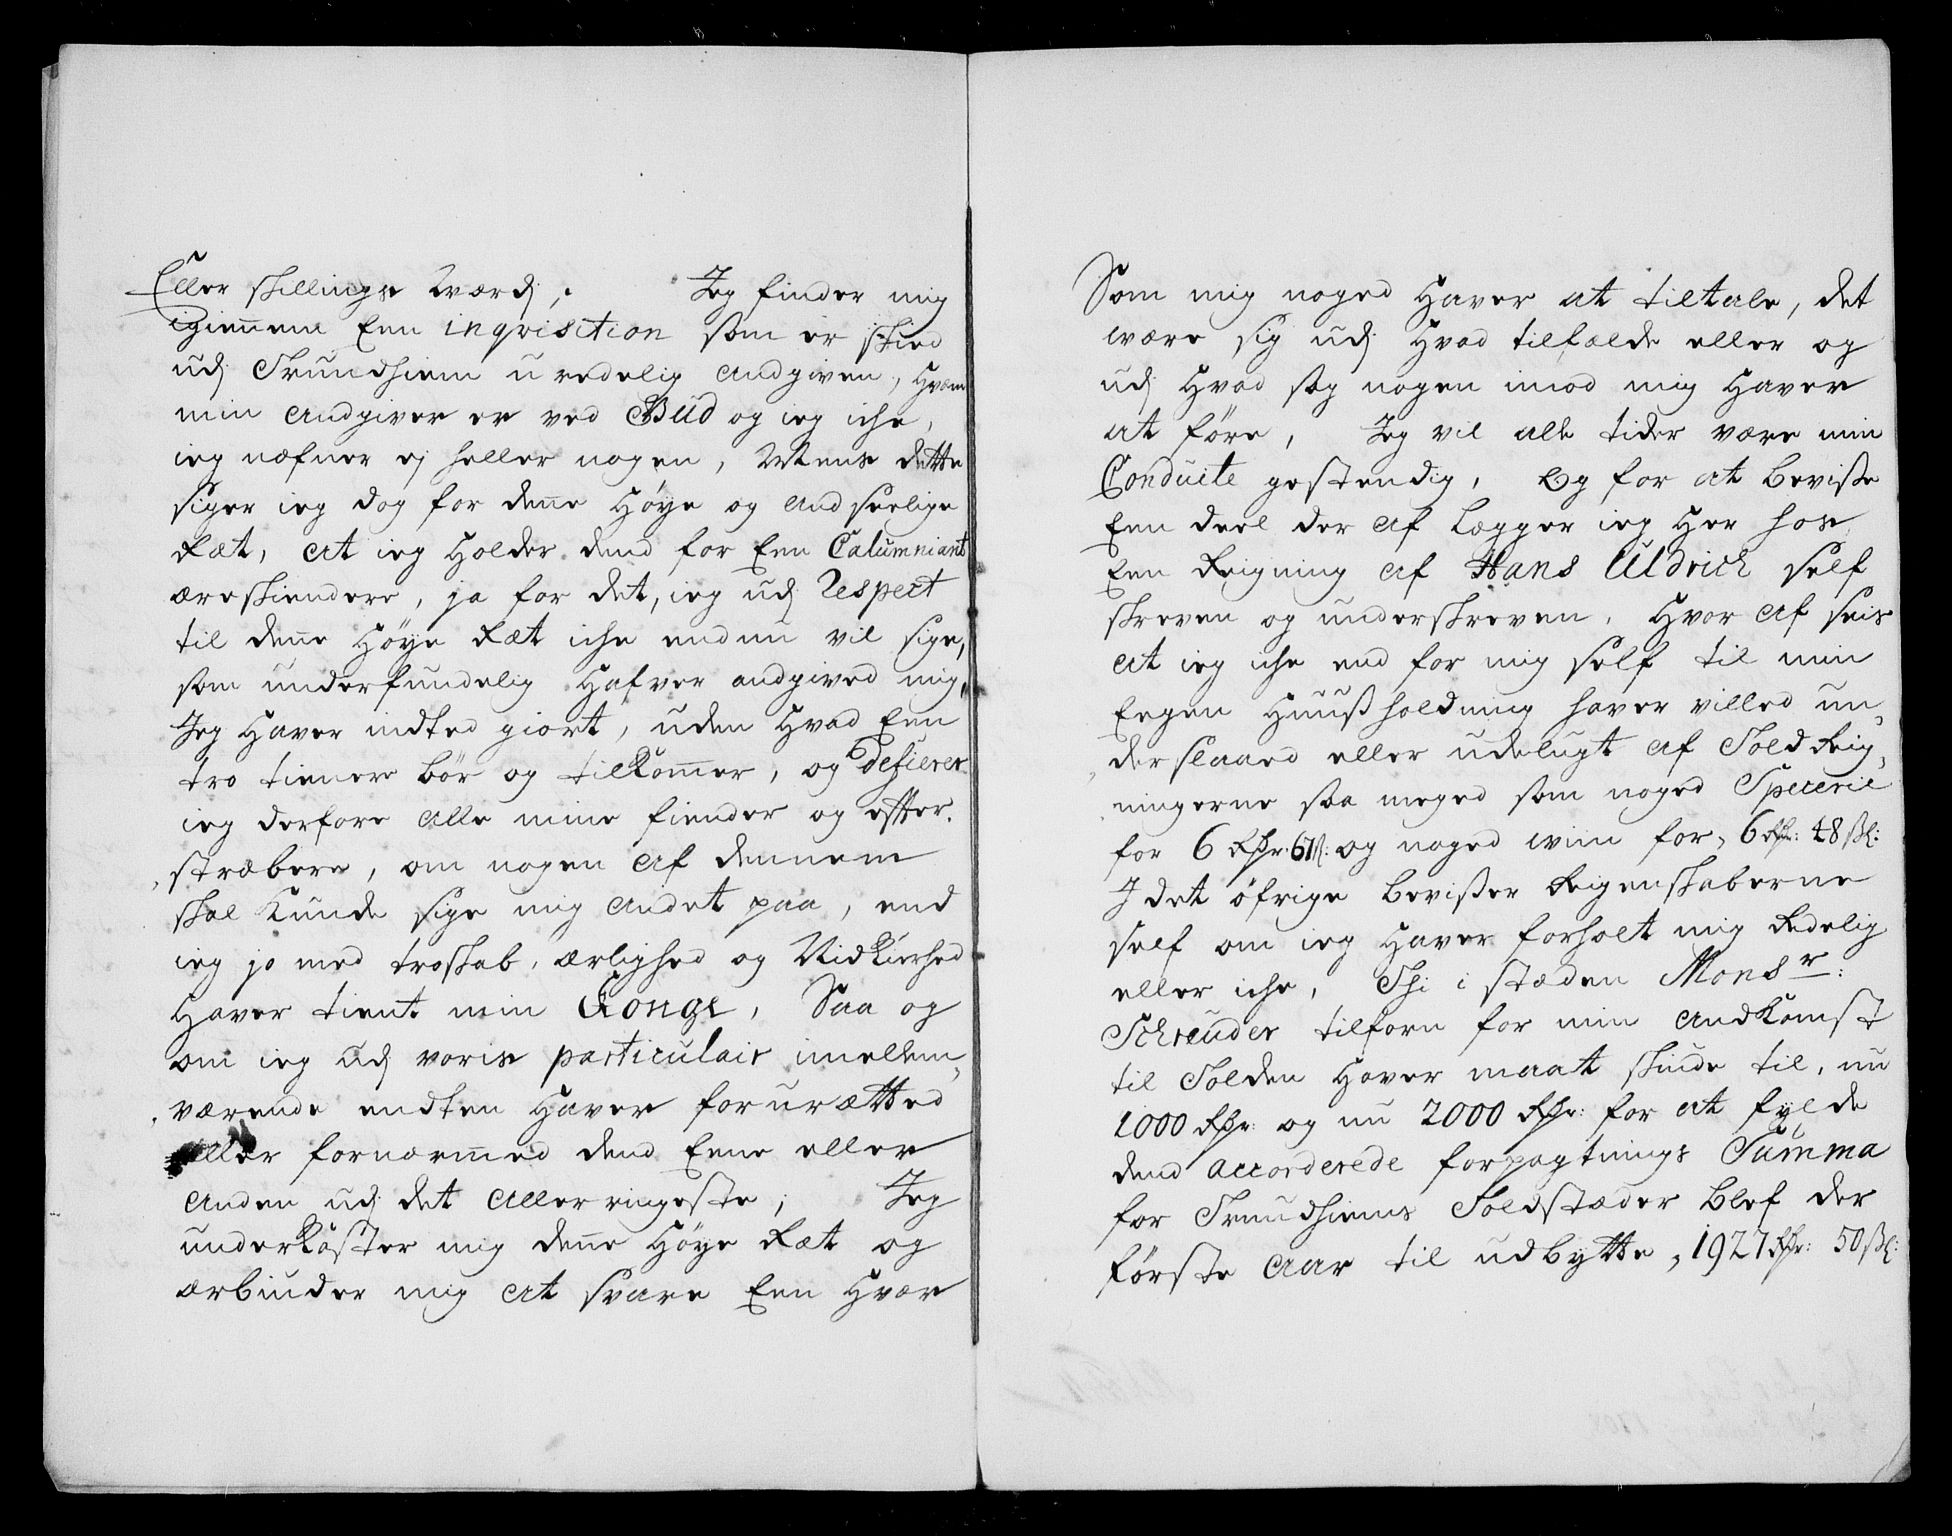 Eller skillings Værdj; Jeg finder mig
igiennem Een inqvisition som er skeed
udj Trundhiem u redelig andgiven, Hvem
min Andgiver er ved Gud og ieg iche,
ieg nefner ej heller nogen, Mens dette
siger ieg dog for denne Høye og andseelige
Ræt, at ieg Holder dend for Een Calumniant
æreskiendere, ja for det, ieg udj Respect
til denne Høye Ræt iche endnu vil sige,
som underfundelig Hafver andgived mig,
Jeg Haver indted giort, uden Hvad Een
tro tienere bør og tilkommer, og defierer
ieg derfore alle mine fiender og effter-
stræbere, om nogen af dennem
skal kunde sige mig andet paa, end
ieg jo med troskab, ærlighed og Nidkierhed
Haver tient min Konge, Saa og
om ieg udj voris particulair imellem,,
værende endten Haver forurætted
eller fornærmed dend Eene eller
anden udj det allerringeste; Jeg
underkaster mig denne Høye Ræt og
ærbiuder mig at svare Een Hver
Som mig noged Haver at tiltale, det
være sig udj Hvad tilfælde eller og
udj Hvad sag nogen imod mig Haver
at føre, Jeg vil alle tider være min
Conduite gestendig, Og for at beviße
Een deel der af legger ieg Her hos
Een Reigning af Hans Uldrich self
skreven og underskreven, Hvor af seis
at ieg iche end for mig self til min
Eegen Huußholdning haver villed un,,
derslaaed eller udelugt af Told Reig,,
ningerne saa meged som noged Specerie
for 6 Rdr: 67 ß: og noged viin for, 6 Rdr: 48 ßl:
J det øfrige bevißer Reigenskaberne
self om ieg Haver forholt mig Redelig
eller iche, Thi i stæden Monsr:
Schreuder tilforn for min andkomst
til Tolden Haver maat skiude til, nu
1000 Rdr: og nu 2000 Rdr: for at fylde
dend accorderede forpagtnings Summa
for Trundhiems Toldstæder blef der
første aar til udbytte, 1927 Rdr: 50 ßl: